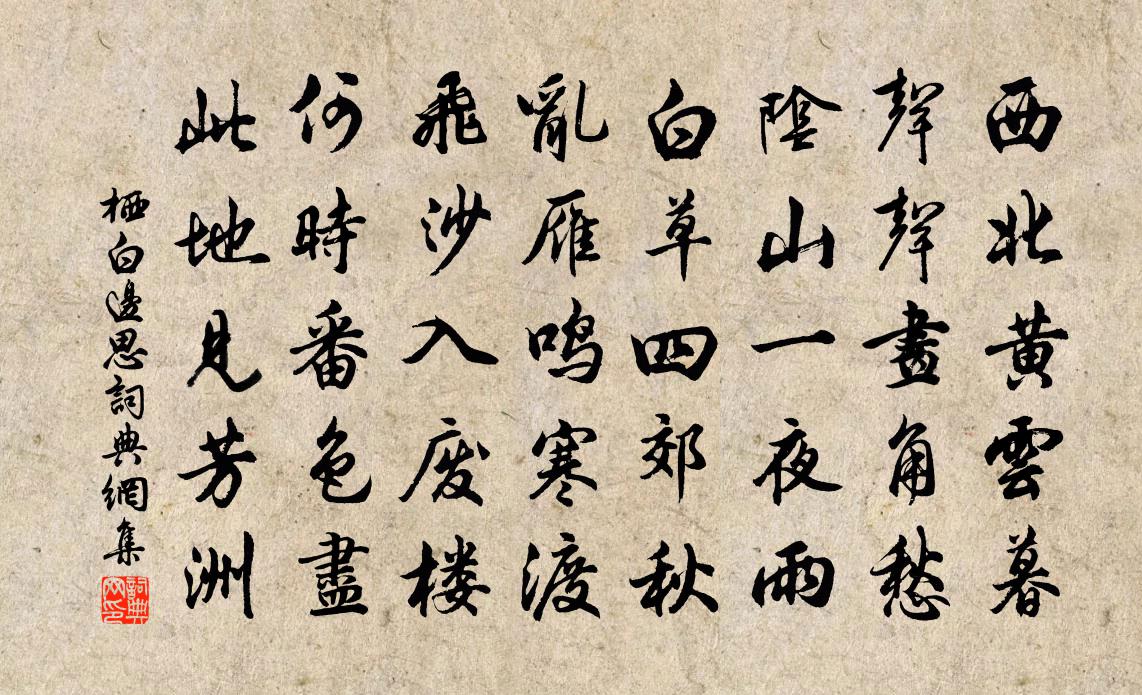 西北黄雲暮
聲聲畫角愁
陰山一夜雨
白草四郊秋
亂雁鳴寒渡
飛沙入废楼
何時番色盡
此地見芳洲
栖白邊思詞典網集
詞典网印